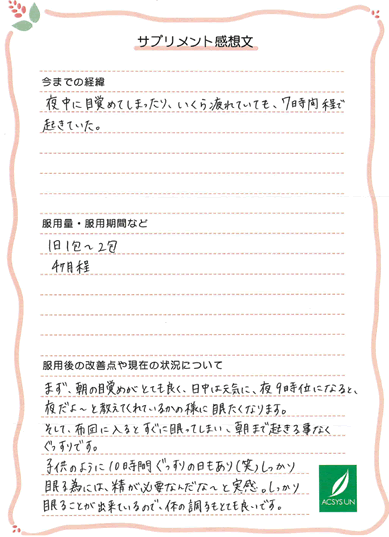 サプリメント感想文
今までの経緯
夜中に目覚めてしまったり、いくら疲れていても、7時間程で
起きていた。
服用量・服用期間など
1日1包〜2包
4ヶ月程
服用後の改善点や現在の状況について
まず、朝の目覚めがとても良く、日中は元気に、夜9時位になると、
夜だよ〜と教えてくれているかの様に眠たくなります。
そして、布団に入るとすぐに眠ってしまい、朝まで起きる事なく
ぐっすりです。
子供のように10時間ぐっすりの日もあり(笑)しっかり
眠る為には、精が必要なんだな〜と実感。しっかり
眠ることが出来ているので、体の調子もとても良いです。
ACSYSUN